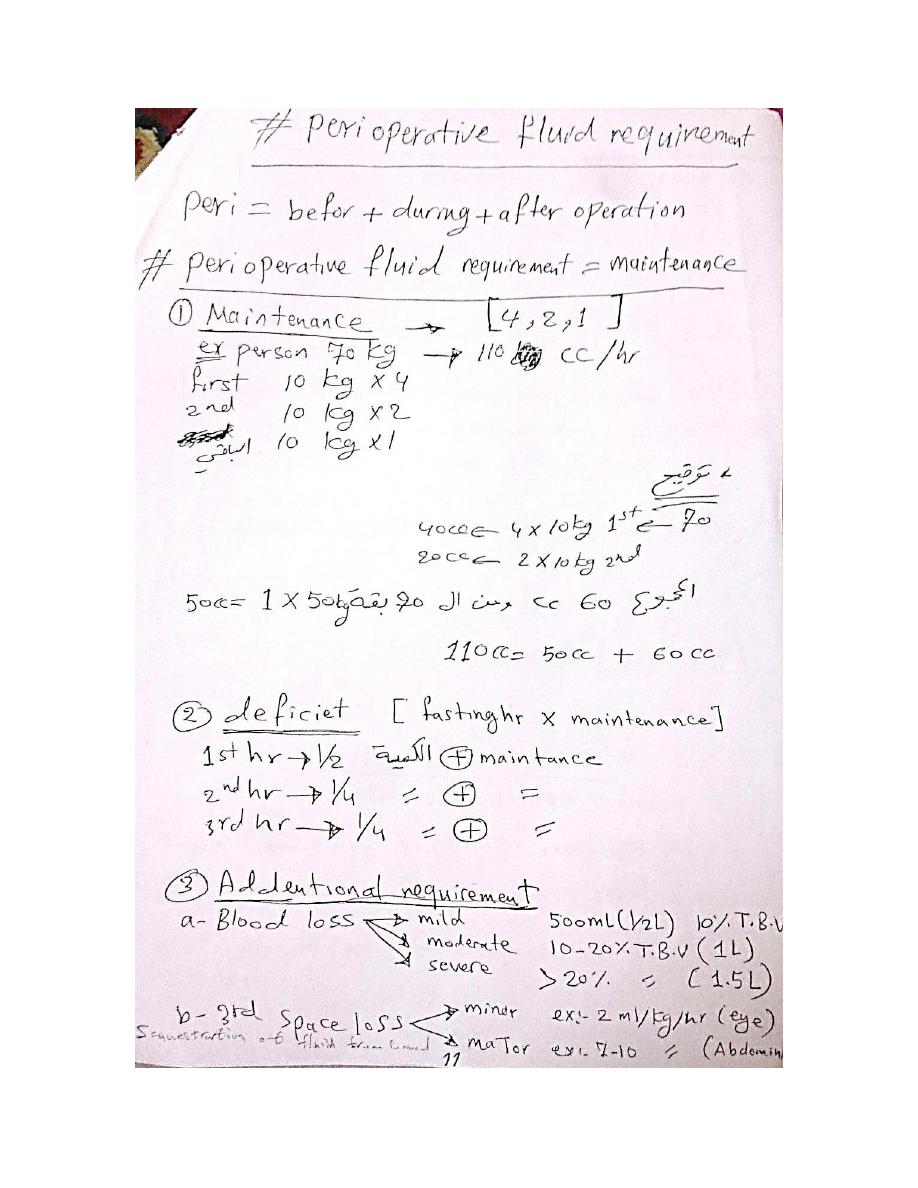 # Perioperative fluid requirement
Peri = befor + during + after operation
# Perioperative fluid requirement = maintenance
① Maintenance → [4,2,1]
ex person 70 kg → 110 cc/hr
first 10 kg x 4
2nd 10 kg x 2
الباقي 10 kg x 1
توضيح
70 ← 1st 10kg x 4 ← 40cc
2nd 10kg x 2 ← 20cc
المجموع 60 cc ومن ال 70 بقة 50kg x 1 = 50cc
60 cc + 50cc = 110cc
② deficiet [fasting hr x maintenance]
1st hr → 1/2 الكمية + maintance
2nd hr → 1/4 = + =
3rd hr → 1/4 = + =
③ Addentional requirement
a- Blood loss → mild 500ml (1/2L) 10% T.B.V
moderate 10-20% T.B.V (1L)
severe >20% = (1.5L)
b- 3rd space loss → minor ex:- 2 ml/kg/hr (eye)
Sequestration of fluid from
→ maTor ex:- 7-10 = (Abdomin
11